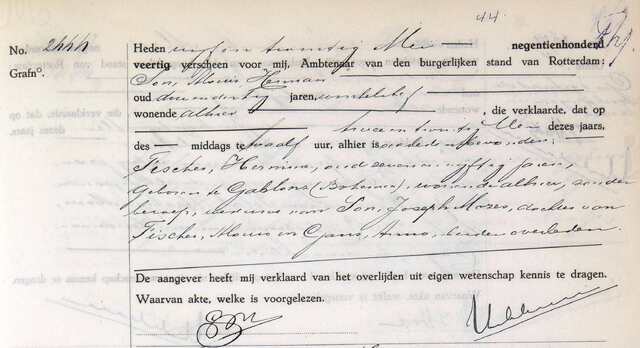 44.
No. 2444
Grafn°.
Heden vijf en twintig Mei negentienhonderd
veertig verscheen voor mij, Ambtenaar van den burgerlijken stand van Rotterdam:
Son, Herman
oud jaren,
wonende alhier , die verklaarde, dat op
twee en twintig Mei dezes jaars,
des — middags te twaalf uur, alhier is overleden:
Fischer, Hermine, oud zeven en vijftig jaren,
geboren te Gablonz (Bohemen), wonende alhier, zonder
beroep, weduwe van Son, Joseph Mozes, dochter van
Fischer, en Anna, beiden overleden.
De aangever heeft mij verklaard van het overlijden uit eigen wetenschap kennis te dragen.
Waarvan akte, welke is voorgelezen.